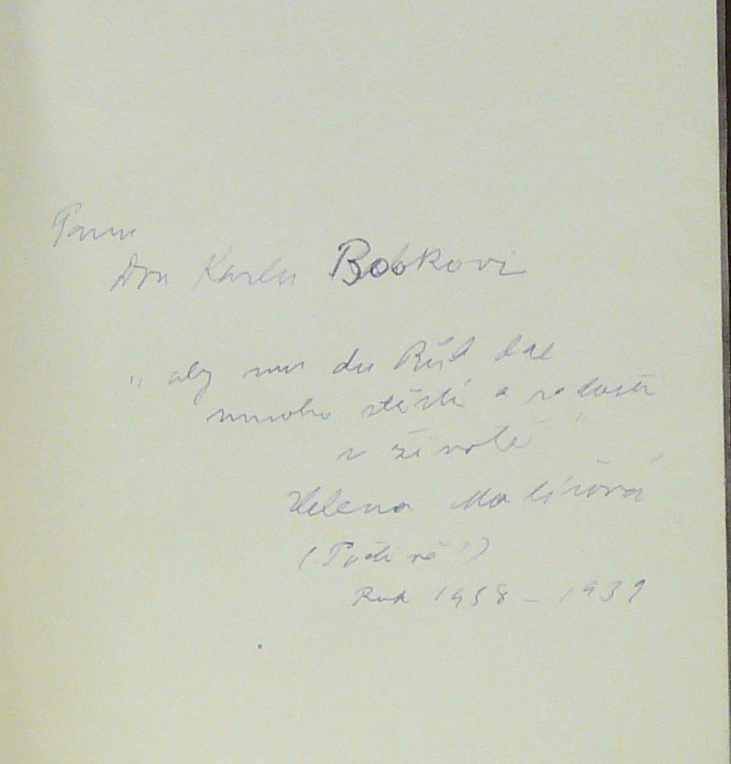 Panu
Dru Karlu Bobkovi
„ aby mu du Bůh dal
mnoho štěstí a radosti
v životě "
Helena Malířová
Rok 1938 – 1939